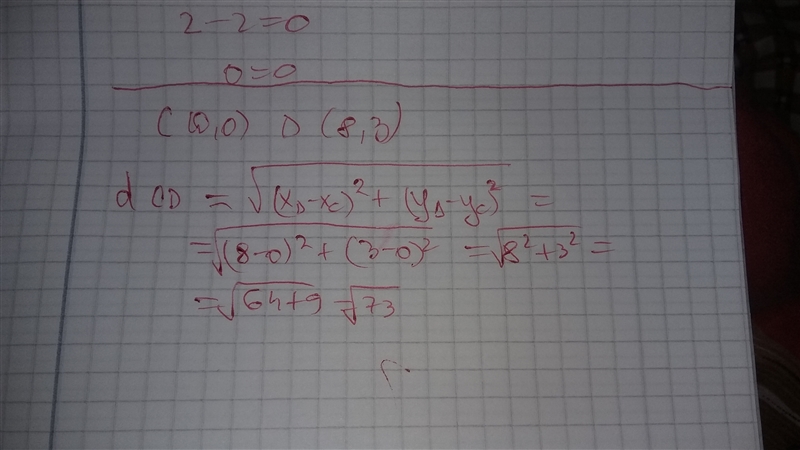 2-2=0
0=0
C (0,0) D (8,3)
d CD = √(x_D-x_C)²+(y_D-y_C)² =
=√(8-0)²+(3-0)² =√8²+3² =
=√64+9 =√73